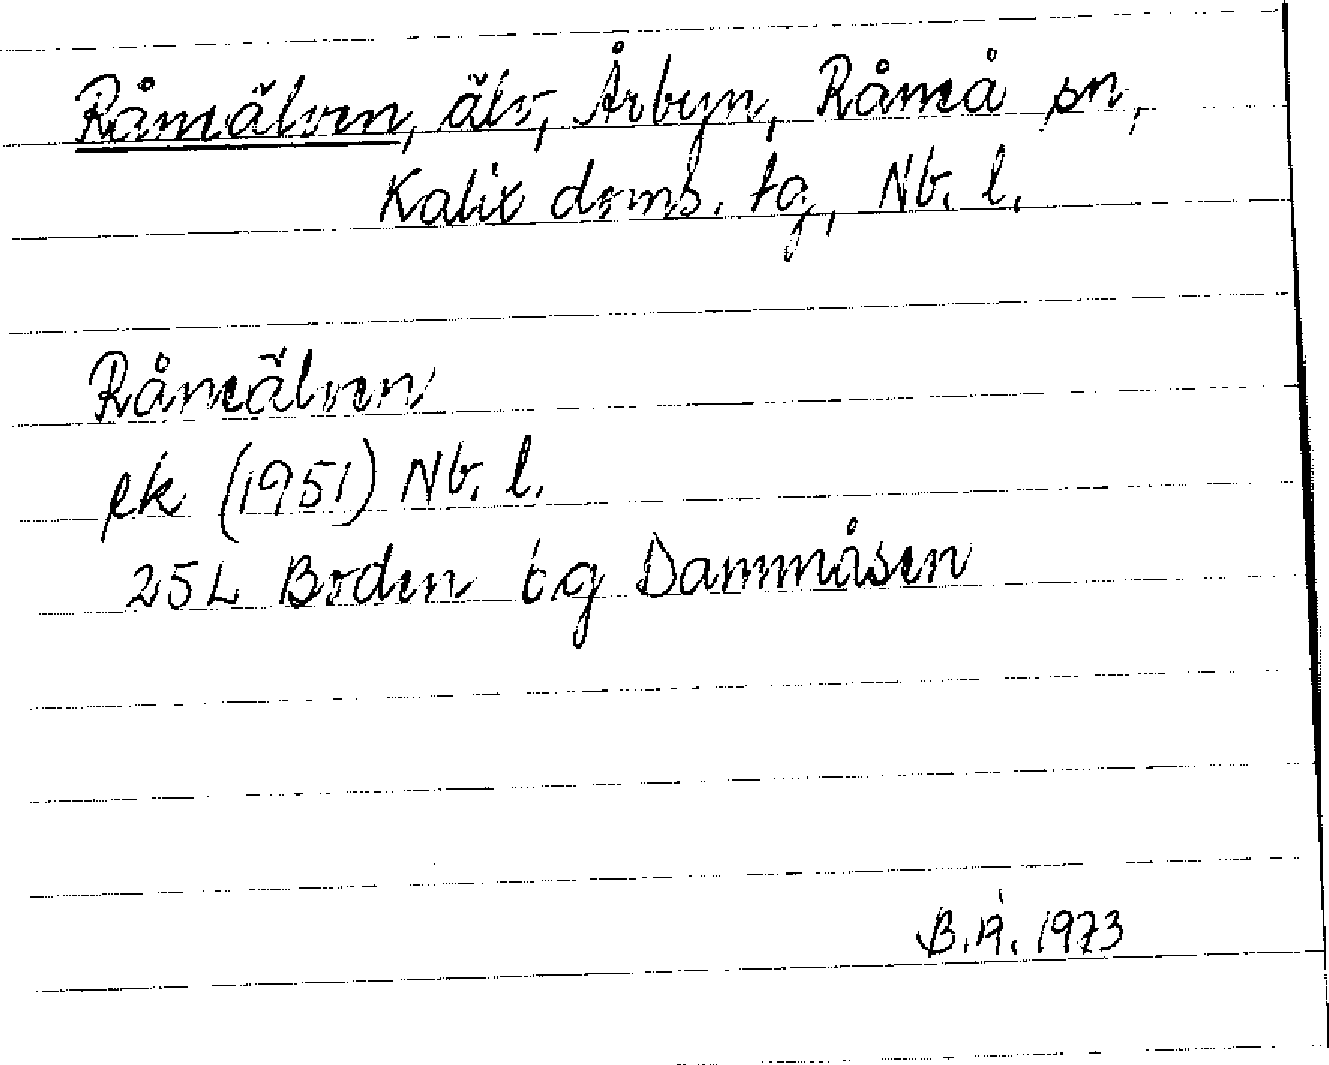 Råneälven, älv, Årbyn, Råneå sn,
Kalix doms. tg, Nb. l.
Råneälven
ek (1951) Nb. l.
25L Boden 6g Dammåsen
B.Å. 1973